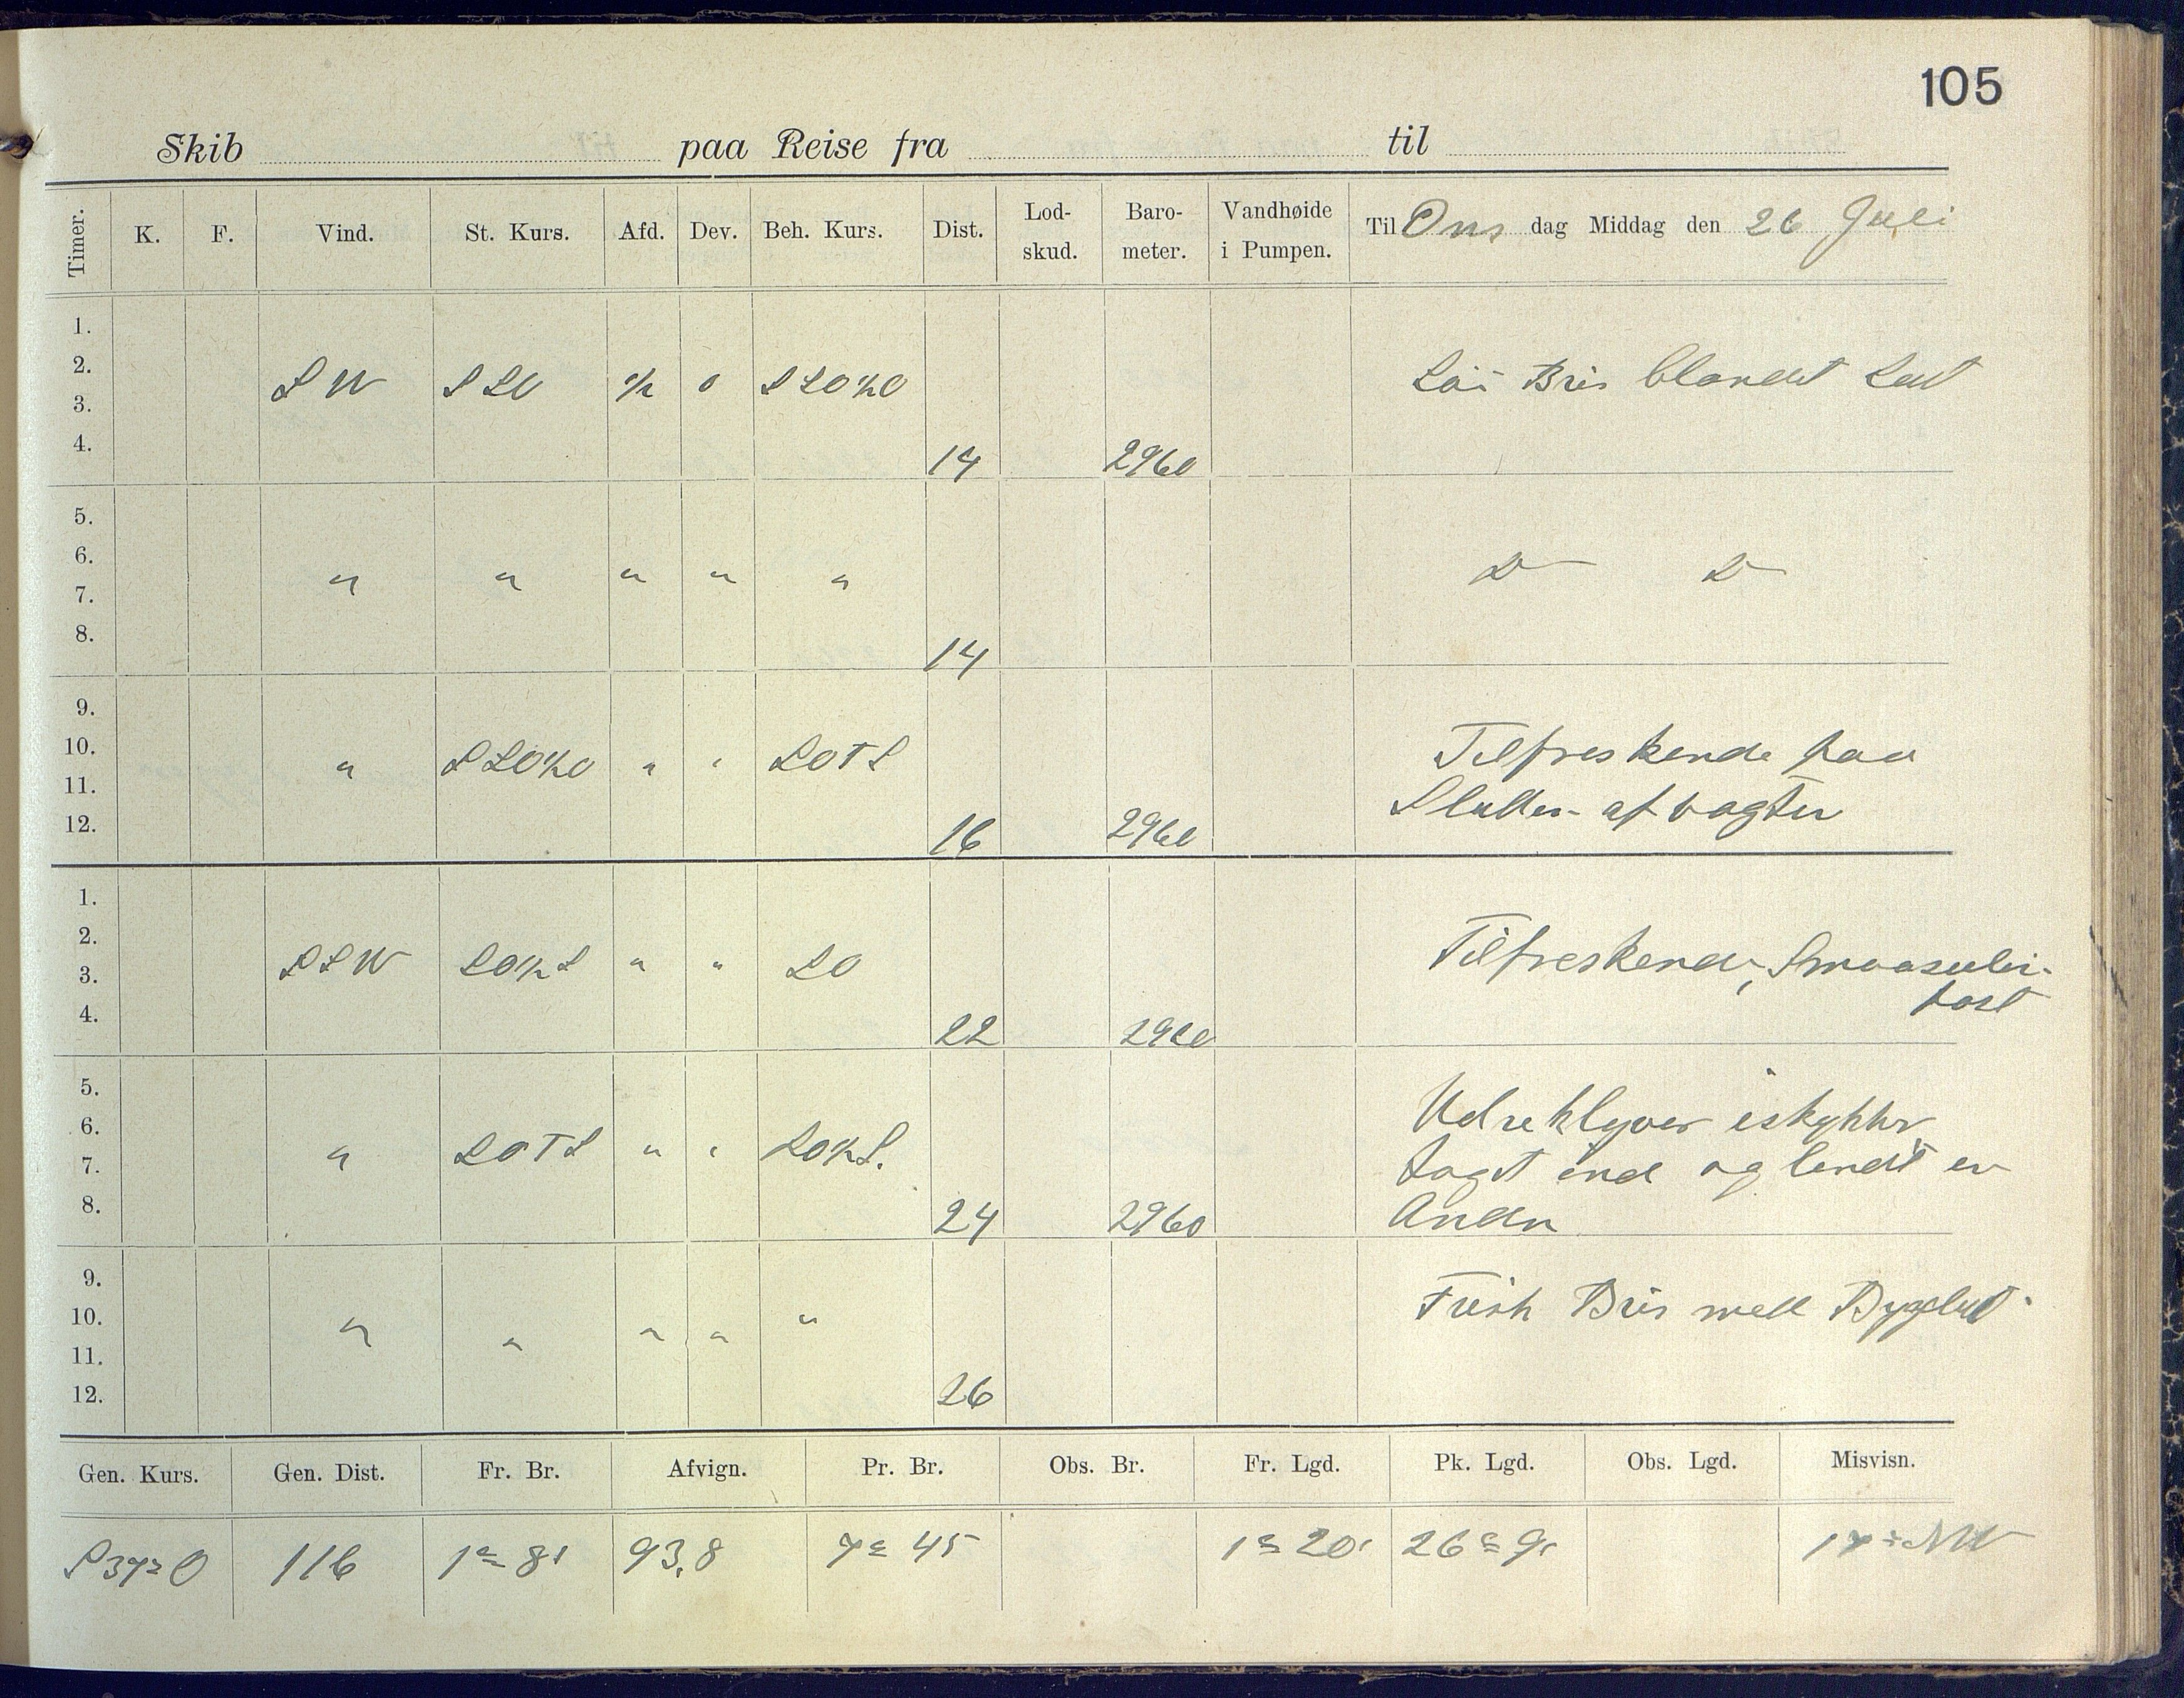 105
Skib paa Reise fra til
Timer. K. F. Vind. St. Kurs. Afd. Dev. Beh. Kurs. Dist. Lod-skud. Baro-meter. Vandhøide i Pumpen. Til Ons dag Middag den 26 Juli
1.
2.
SW SSO ½ 0 SSO½O Løi Bris blandet Luft
3.
4. 14 2960
5.
6.
" " " " " Do Do
7.
8. 14
9.
10. " SSO½O " " SOTS Tilfreskende paa
11. Slutten af vagten
12. 16 2960
1.
2.
SSW SO½S " " SO Tilfreskende, Smaaseilene
3.
fast
4. 22 2960
5.
Udre klyver
6.
" SOTS " " SO½S.
7. taget ind og lendt en
8. 24 2960 Anden
9.
Frisk Bris med Bygeluft
10. " " " " "
11.
12. 26
Gen. Kurs. Gen. Dist. Fr. Br. Afvign. Pr. Br. Obs. Br. Fr. Lgd. Pk. Lgd. Obs. Lgd. Misvisn.
S37°O 116 1° 8' 93,8 7° 45 1° 20' 26° 9' 17° NW